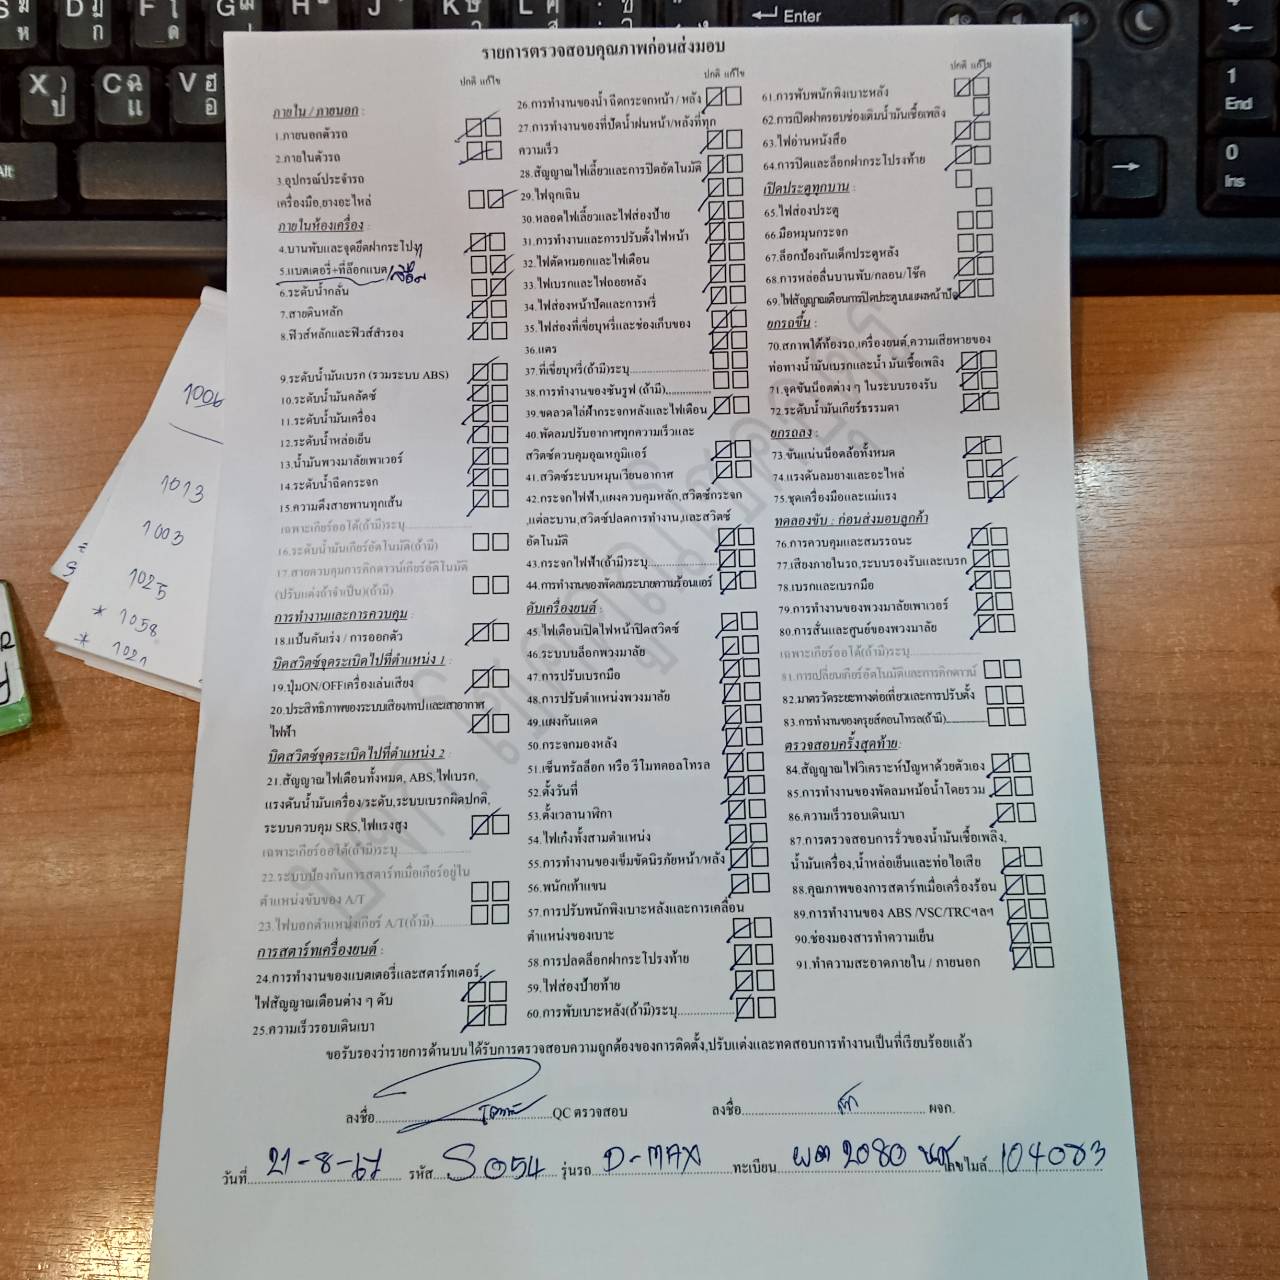 รายการตรวจสอบคุณภาพก่อนส่งมอบ
ปกติ แก้ไข
ภายใน / ภายนอก :
1.ภายนอกตัวรถ
2.ภายในตัวรถ
3.อุปกรณ์ประจำรถ
เครื่องมือ,ยางอะไหล่
ภายในห้องเครื่อง :
4.บานพับและจุดยึดฝากระโปรง
5.แบตเตอรี่+ที่ล๊อกแบต
6.ระดับน้ำกลั่น
7.สายดินหลัก
8.ฟิวส์หลักและฟิวส์สำรอง
9.ระดับน้ำมันเบรก (รวมระบบ ABS)
10.ระดับน้ำมันคลัตช์
11.ระดับน้ำมันเครื่อง
12.ระดับน้ำหล่อเย็น
13.น้ำมันพวงมาลัยเพาเวอร์
14.ระดับน้ำฉีดกระจก
15.ความตึงสายพานทุกเส้น
เฉพาะเกียร์ออโต้(ถ้ามี)ระบุ
16.ระดับน้ำมันเกียร์อัตโนมัติ(ถ้ามี)
17.สายควบคุมการคิกดาวน์เกียร์อัติโนมัติ
(ปรับแต่งถ้าจำเป็น)(ถ้ามี)
การทำงานและการควบคุม :
18.แป้นคันเร่ง / การออกตัว
บิดสวิตช์จุดระเบิดไปที่ตำแหน่ง 1 :
19.ปุ่มON/OFFเครื่องเล่นเสียง
20.ประสิทธิภาพของระบบเสียงเทปและเสาอากาศ
ไฟฟ้า
บิดสวิตซ์จุดระเบิดไปที่ตำแหน่ง 2 :
21.สัญญาณไฟเตือนทั้งหมด, ABS,ไฟเบรก,
แรงดันน้ำมันเครื่อง/ระดับ,ระบบเบรกผิดปกติ,
ระบบควบคุม SRS,ไฟแรงสูง
เฉพาะเกียร์ออโต้(ถ้ามี)ระบุ
22.ระบบป้องกันการสตาร์ทเมื่อเกียร์อยู่ใน
ตำแหน่งขับของ A/T
23.ไฟบอกตำแหน่งเกียร์ A/T(ถ้ามี)
การสตาร์ทเครื่องยนต์ :
24.การทำงานของแบตเตอรี่และสตาร์ทเตอร์,
ไฟสัญญาณเตือนต่าง ๆ ดับ
25.ความเร็วรอบเดินเบา
ปกติ แก้ไข
26.การทำงานของน้ำ ฉีดกระจกหน้า / หลัง
27.การทำงานของที่ปัดน้ำฝนหน้า/หลังที่ทุก
ความเร็ว
28.สัญญาณไฟเลี้ยวและการปิดอัตโนมัติ
29.ไฟฉุกเฉิน
30.หลอดไฟเลี้ยวและไฟส่องป้าย
31.การทำงานและการปรับตั้งไฟหน้า
32.ไฟตัดหมอกและไฟเตือน
33.ไฟเบรกและไฟถอยหลัง
34.ไฟส่องหน้าปัดและการหรี่
35.ไฟส่องที่เขี่ยบุหรี่และช่องเก็บของ
36.แตร
37.ที่เขี่ยบุหรี่(ถ้ามี)ระบุ
38.การทำงานของซันรูฟ (ถ้ามี)
39.ขดลวดไล่ฝ้ากระจกหลังและไฟเตือน
40.พัดลมปรับอากาศทุกความเร็วและ
สวิตช์ควบคุมอุณหภูมิแอร์
41.สวิตซ์ระบบหมุนเวียนอากาศ
42.กระจกไฟฟ้า,แผงควบคุมหลัก,สวิตช์กระจก
,แต่ละบาน,สวิตช์ปลดการทำงาน,และสวิตช์
อัตโนมัติ
43.กระจกไฟฟ้า(ถ้ามี)ระบุ
44.การทำงานของพัดลมระบายความร้อนแอร์
ดับเครื่องยนต์ :
45.ไฟเตือนเปิดไฟหน้าปิดสวิตซ์
46.ระบบบล๊อกพวงมาลัย
47.การปรับเบรกมือ
48.การปรับตำแหน่งพวงมาลัย
49.แผงกันแดด
50.กระจกมองหลัง
51.เซ็นทรัลล็อก หรือ รีโมทคอลโทรล
52.ตั้งวันที่
53.ตั้งเวลานาฬิกา
54.ไฟเก๋งทั้งสามตำแหน่ง
55.การทำงานของเข็มขัดนิรภัยหน้า/หลัง
56.พนักเท้าแขน
57.การปรับพนักพิงเบาะหลังและการเคลื่อน
ตำแหน่งของเบาะ
58.การปลดล็อกฝากระโปรงท้าย
59.ไฟส่องป้ายท้าย
60.การพับเบาะหลัง(ถ้ามี)ระบุ
ปกติ แก้ไข
61.การพับพนักพิงเบาะหลัง
62.การเปิดฝาครอบช่องเติมน้ำมันเชื้อเพลิง
63.ไฟอ่านหนังสือ
64.การปิดและล็อกฝากระโปรงท้าย
เปิดประตูทุกบาน :
65.ไฟส่องประตู
66.มือหมุนกระจก
67.ล็อกป้องกันเด็กประตูหลัง
68.การหล่อลื่นบานพับ/กลอน/โช๊ค
69.ไฟสัญญาณเตือนการปิดประตูบนแผงหน้าปัด
ยกรถขึ้น :
70.สภาพใต้ท้องรถ,เครื่องยนต์,ความเสียหายของ
ท่อทางน้ำมันเบรกและน้ำ มันเชื้อเพลิง
71.จุดขันน็อตต่าง ๆ ในระบบรองรับ
72.ระดับน้ำมันเกียร์ธรรมดา
ยกรถลง :
73.ขันแน่นน็อตล้อทั้งหมด
74.แรงดันลมยางและอะไหล่
75.ชุดเครื่องมือและแม่แรง
ทดลองขับ : ก่อนส่งมอบลูกค้า
76.การควบคุมและสมรรถนะ
77.เสียงภายในรถ,ระบบรองรับและเบรก
78.เบรกและเบรกมือ
79.การทำงานของพวงมาลัยเพาเวอร์
80.การสั่นและศูนย์ของพวงมาลัย
เฉพาะเกียร์ออโต้(ถ้ามี)ระบุ
81.การเปลี่ยนเกียร์อัตโนมัติและการคิกดาวน์
82.มาตรวัดระยะทางต่อเที่ยวและการปรับตั้ง
83.การทำงานของครุยส์คอนโทรล(ถ้ามี)
ตรวจสอบครั้งสุดท้าย:
84.สัญญาณไฟวิเคราะห์ปัญหาด้วยตัวเอง
85.การทำงานของพัดลมหม้อน้ำโดยรวม
86.ความเร็วรอบเดินเบา
87.การตรวจสอบการรั่วของน้ำมันเชื้อเพลิง,
น้ำมันเครื่อง,น้ำหล่อเย็นและท่อไอเสีย
88.คุณภาพของการสตาร์ทเมื่อเครื่องร้อน
89.การทำงานของ ABS /VSC/TRCฯลฯ
90.ช่องมองสารทำความเย็น
91.ทำความสะอาดภายใน / ภายนอก
ขอรับรองว่ารายการด้านบนได้รับการตรวจสอบความถูกต้องของการติดตั้ง,ปรับแต่งและทดสอบการทำงานเป็นที่เรียบร้อยแล้ว
ลงชื่อ QC ตรวจสอบ ลงชื่อ ผจก.
วันที่ 21-8-67 รหัส S054 รุ่นรถ D-MAX ทะเบียน ผต 2080 เลขไมล์ 104083
1006
1013
1003
1025
* 1058
* 1021
X ป
C ฉ แ
V ฮ อ
D ก
F ด
G
H
J
K
L
Enter
Alt
1 End
0 Ins